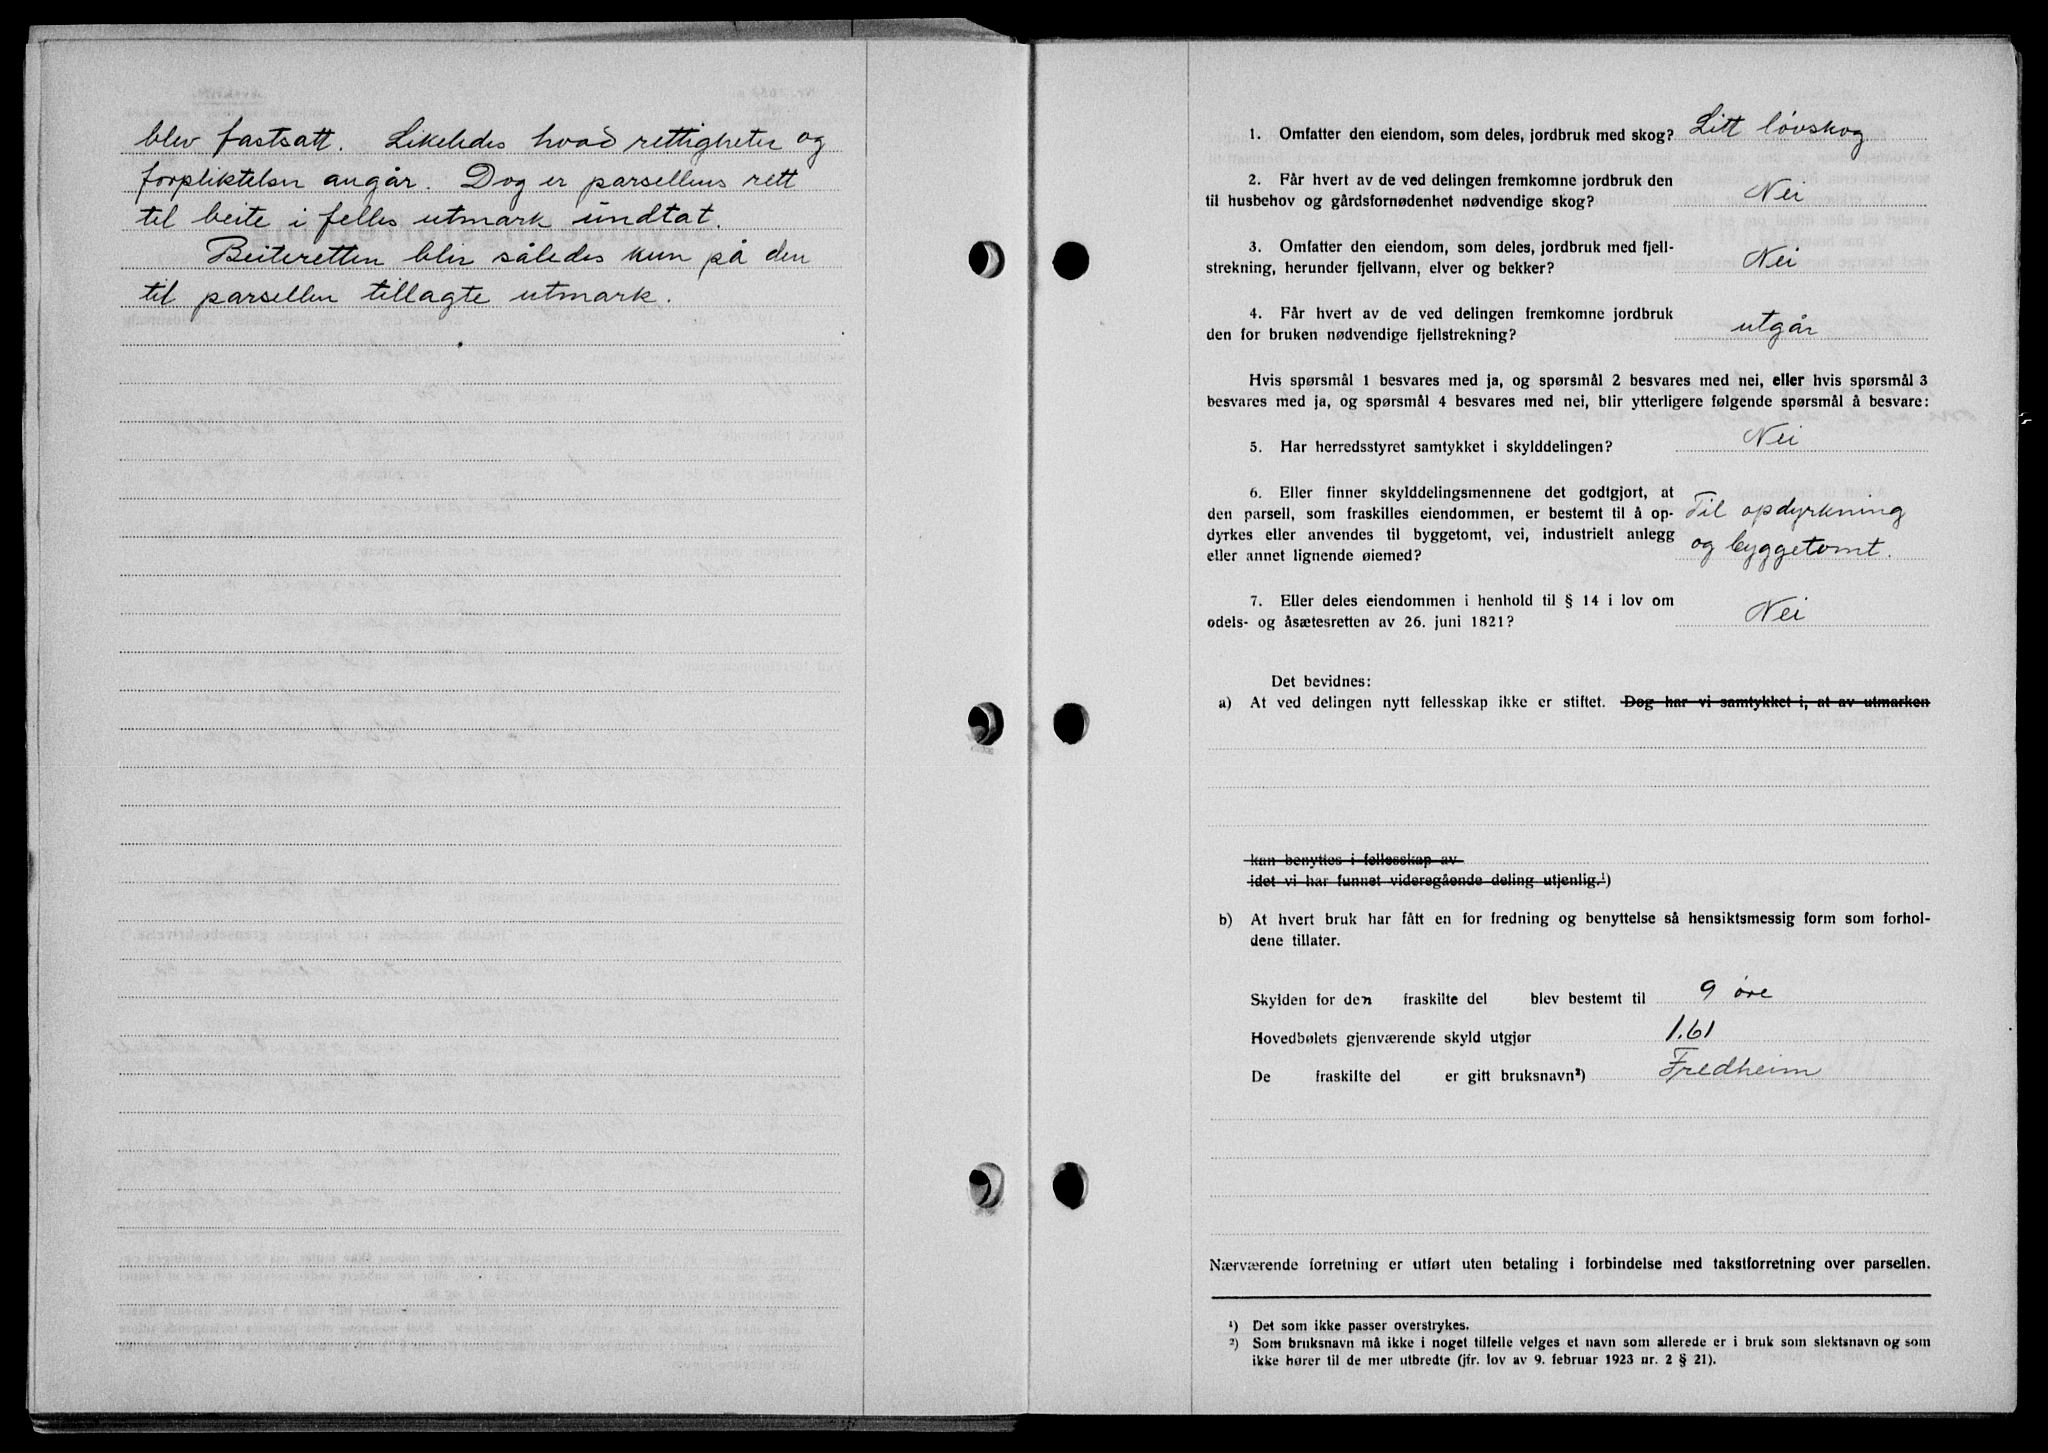 blev fastsatt. Likeledes hvad rettigheter og
forpliktelser angår. Dog er parsellens rett
til beite i felles utmark undtat.
Beiteretten blir således kun på den
til parsellen tillagte utmark.
1. Omfatter den eiendom, som deles, jordbruk med skog? Litt løvskog
2. Får hvert av de ved delingen fremkomne jordbruk den
til husbehov og gårdsfornødenhet nødvendige skog? Nei
3. Omfatter den eiendom, som deles, jordbruk med fjell-
strekning, herunder fjellvann, elver og bekker? Nei
4. Får hvert av de ved delingen fremkomne jordbruk
den for bruken nødvendige fjellstrekning? utgår
Hvis spørsmål 1 besvares med ja, og spørsmål 2 besvares med nei, eller hvis spørsmål 3
besvares med ja, og spørsmål 4 besvares med nei, blir ytterligere følgende spørsmål å besvare:
5. Har herredsstyret samtykket i skylddelingen? Nei
6. Eller finner skylddelingsmennene det godtgjort, at
den parsell, som fraskilles eiendommen, er bestemt til å op- Til opdyrkning
dyrkes eller anvendes til byggetomt, vei, industrielt anlegg og byggetomt.
eller annet lignende øiemed?
7. Eller deles eiendommen i henhold til § 14 i lov om
odels- og åsætesretten av 26. juni 1821? Nei
Det bevidnes:
a) At ved delingen nytt fellesskap ikke er stiftet. Dog har vi samtykket i, at av utmarken
kan benyttes i fellesskap av
idet vi har funnet videregående deling utjenlig.¹)
b) At hvert bruk har fått en for fredning og benyttelse så hensiktsmessig form som forhol-
dene tillater.
Skylden for den fraskilte del blev bestemt til 9 øre
Hovedbølets gjenværende skyld utgjør 1.61
De fraskilte del er gitt bruksnavn²) Fredheim
Nærværende forretning er utført uten betaling i forbindelse med takstforretning over parsellen.
¹) Det som ikke passer overstrykes.
²) Som bruksnavn må ikke i noget tilfelle velges et navn som allerede er i bruk som slektsnavn og som
ikke hører til de mer utbredte (jfr. lov av 9. februar 1923 nr. 2 § 21).